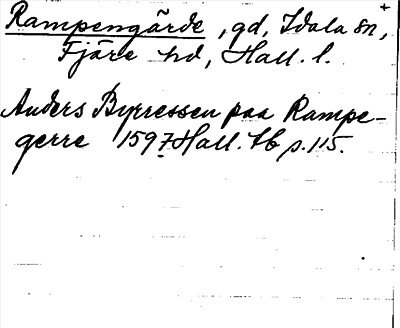 Rampengärde, gd, Idala sn,+
Fjäre hd, Hall. l.
Anders Byrressen paa Rampe-
gerre 1597 Hall. tb p. 115.